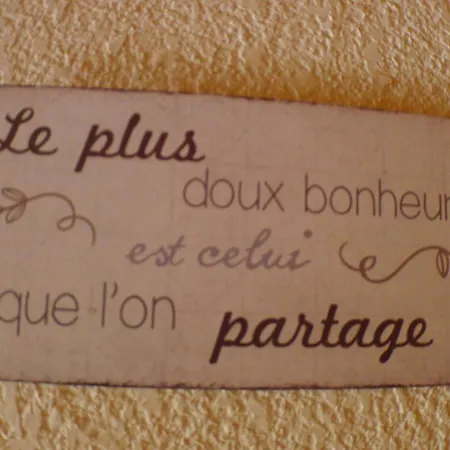 Le plus
doux bonheur
est celui
que l'on
partage